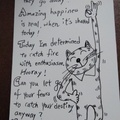 Amazing happiness
is real, when, it's shared
today!
Today I'm determined
to catch fire
with enthusiasm,
Hooray!
Can you let
of your fears
to catch your destiny
anyway?